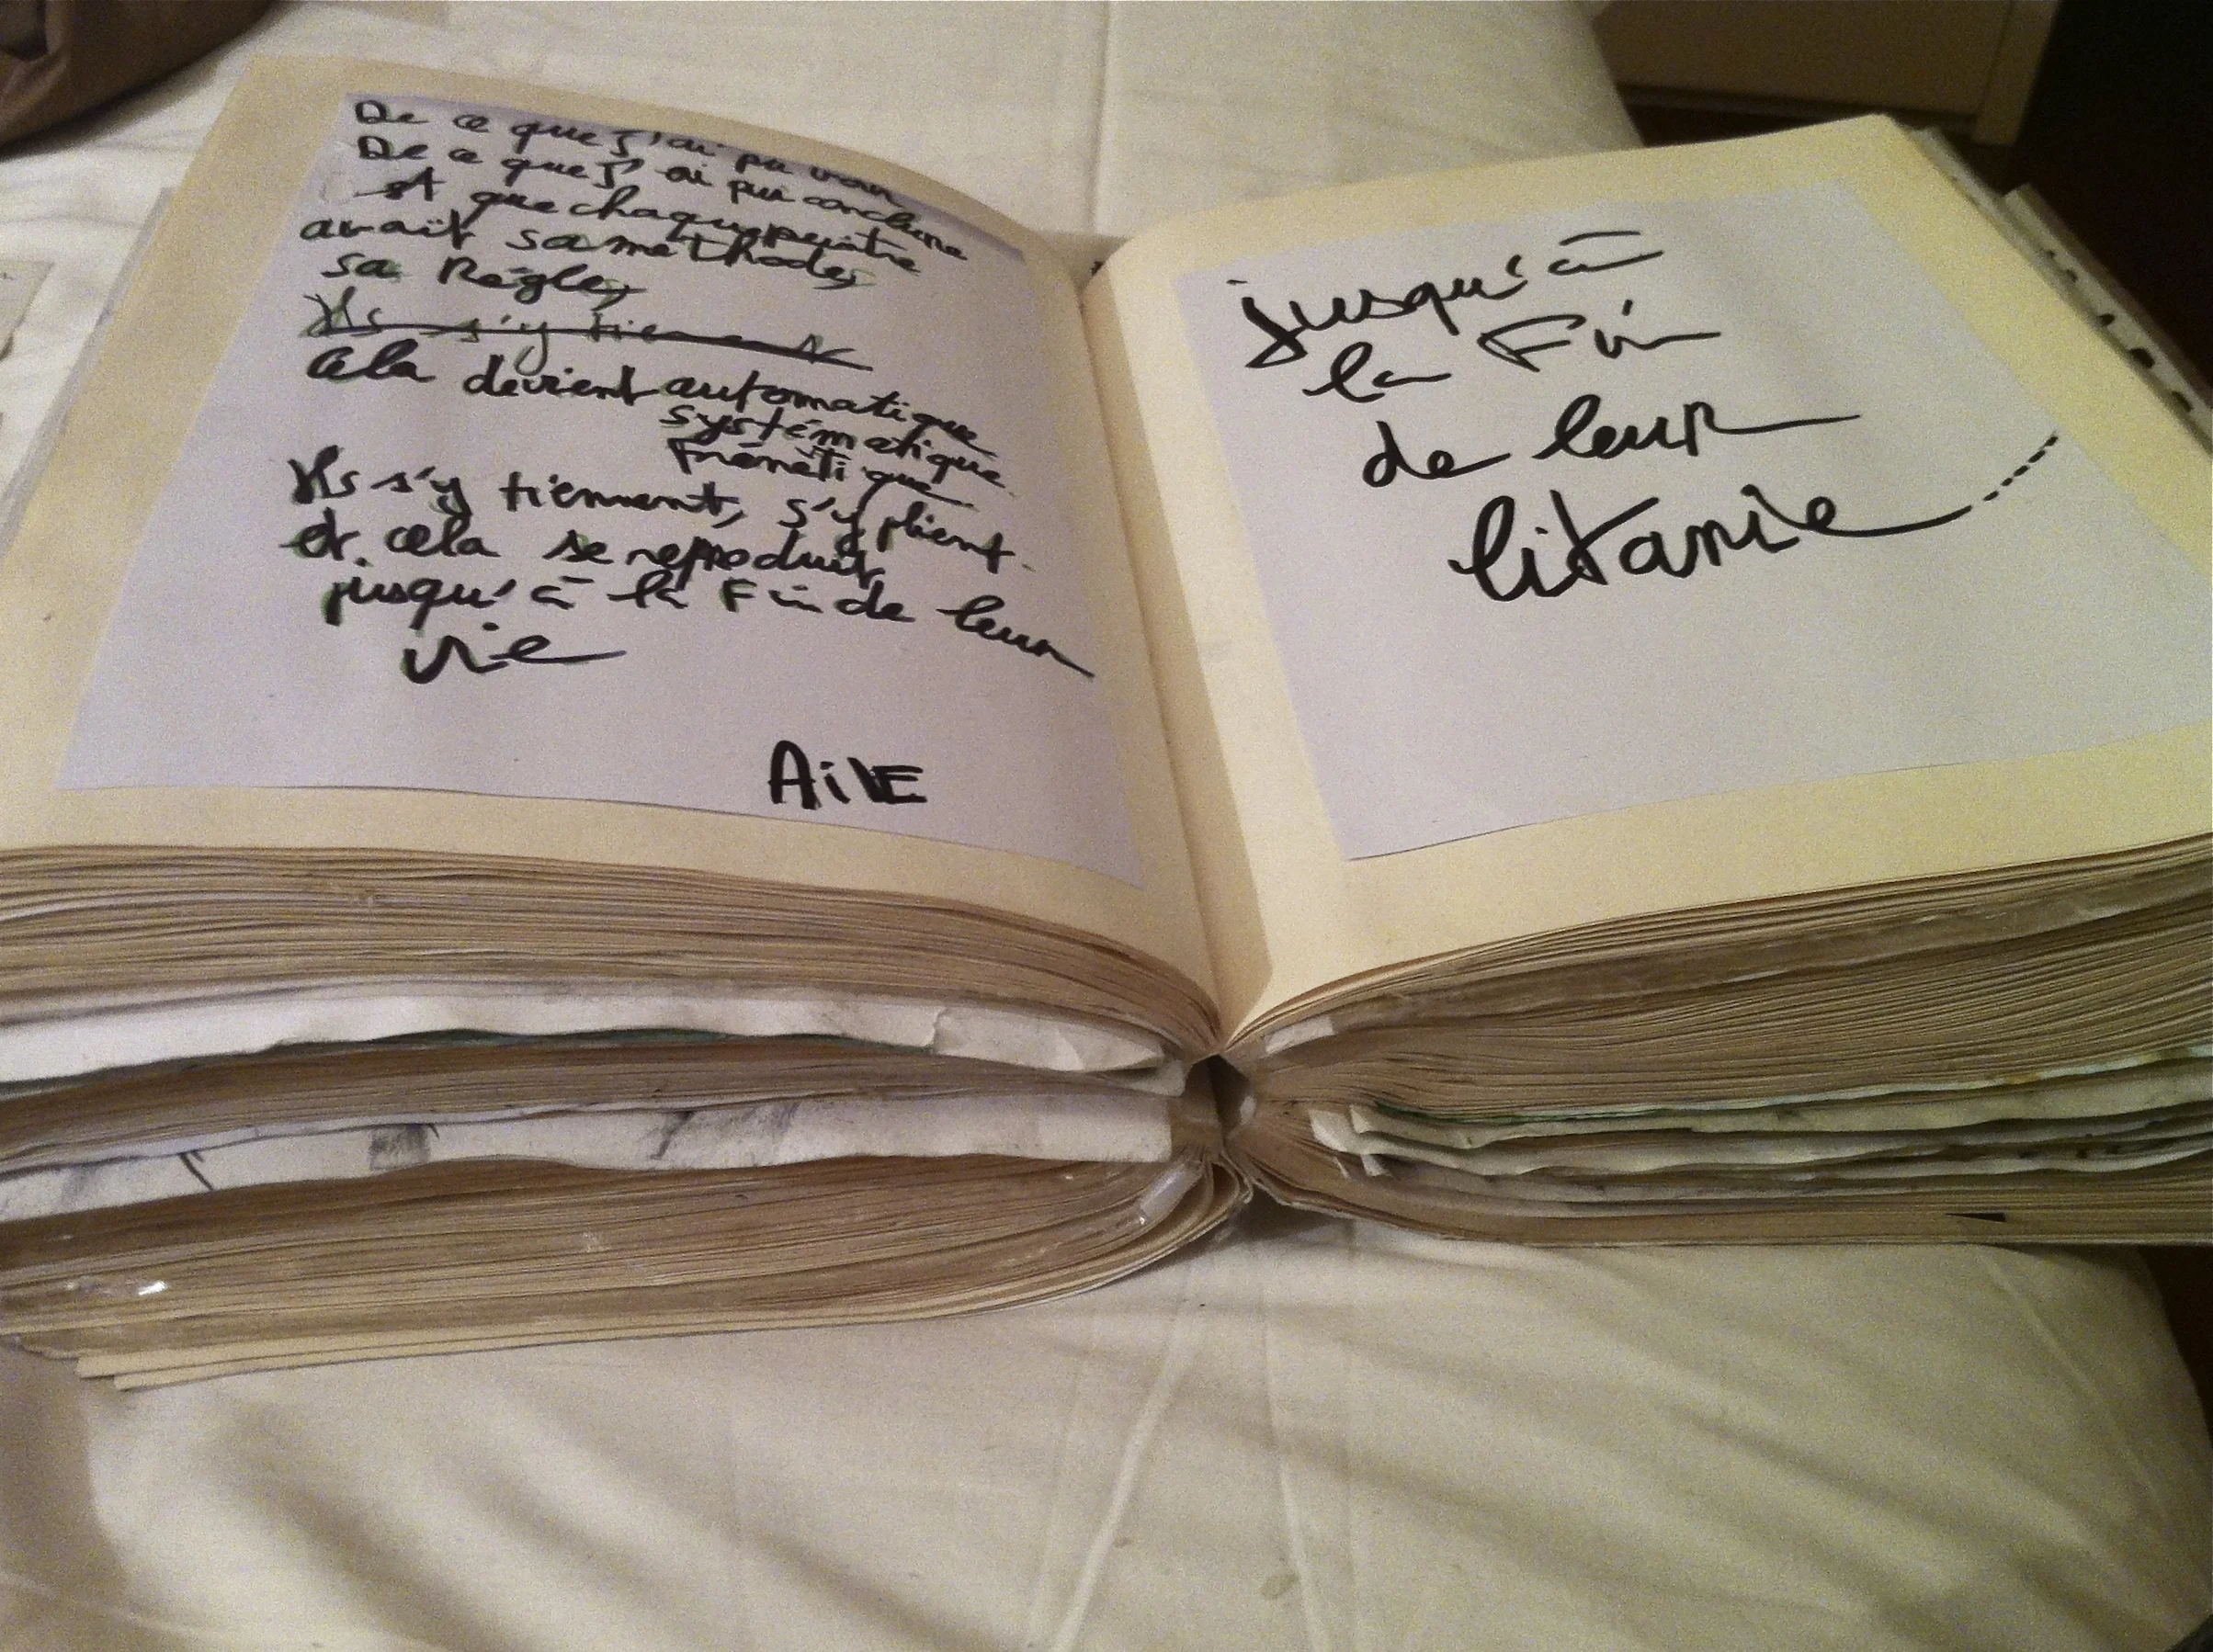 De ce que j'ai pu voir
De ce que j'ai pu conclure
est que chaque peintre
avait sa méthode,
sa Règle,
Ils s'y tiennent
Cela devient automatique
systématique
Frénétique
Ils s'y tiennent, s'y plient.
et cela se reproduit
jusqu'à la Fin de leur
vie
AiVE
jusqu'à
la Fin
de leur
litanie